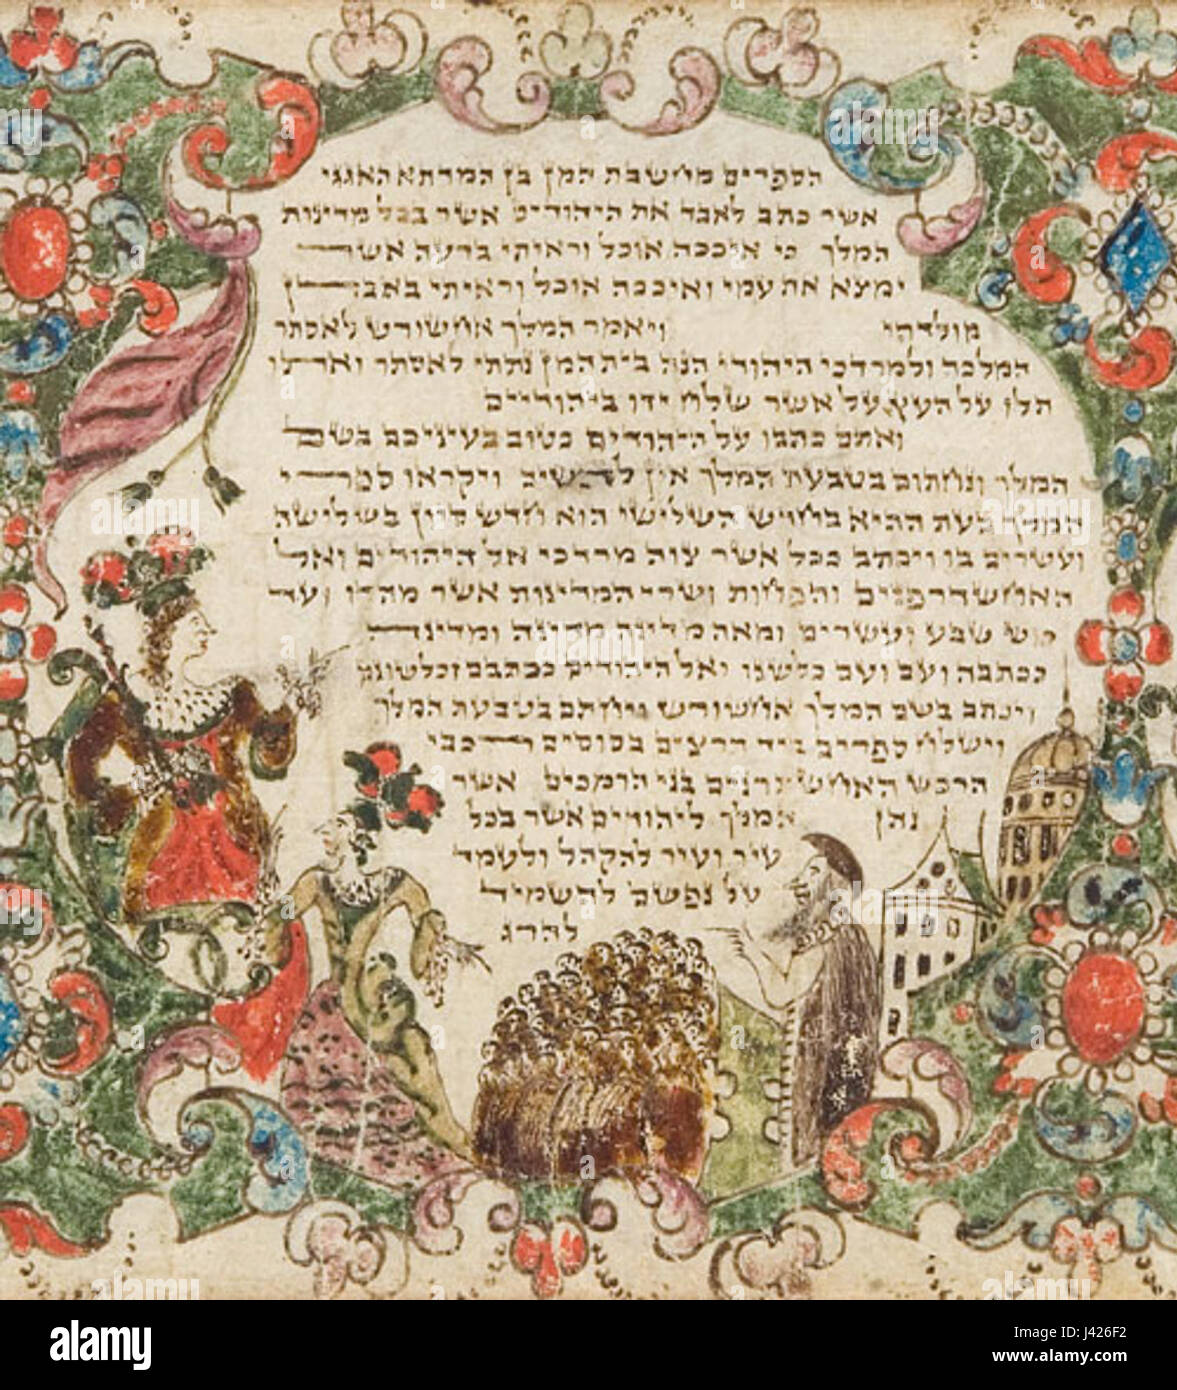 הספרים מחשבת המן בן המדתא האגגי
אשר כתב לאבד את היהודים אשר בכל מדינות
המלך כי איככה אוכל וראיתי ברעה אשר
ימצא את עמי ואיככה אוכל וראיתי באבדן
מולדתי ויאמר המלך אחשורש לאסתר
המלכה ולמרדכי היהודי הנה בית המן נתתי לאסתר ואתו
תלו על העץ על אשר שלח ידו ביהודיים
ואתם כתבו על היהודים כטוב בעיניכם בשם
המלך וחתמו בטבעת המלך אין להשיב ויקראו ספרי
המלך בעת ההיא בחדש השלישי הוא חדש סיון בשלושה
ועשרים בו ויכתב ככל אשר צוה מרדכי אל היהודים ואל
האחשדרפנים והפחות ושרי המדינות אשר מהדו ועד
כוש שבע ועשרים ומאה מדינה מדינה ומדינה
ככתבה ועם ועם כלשנו ואל היהודים ככתבם וכלשונם
ויכתב בשם המלך אחשורש ויחתם בטבעת המלך
וישלח ספרים ביד הרצים בסוסים רכבי
הרכש האחשתרנים בני הרמכים אשר
נתן המלך ליהודים אשר בכל
עיר ועיר להקהל ולעמד
על נפשם להשמיד
להרג
alamy
Image ID: J426F2
www.alamy.com